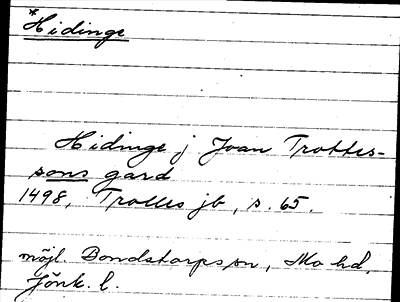 *Hidinge
Hidinge j Joan Trottes-
sons gard
1498, Trolles jb, s. 65.
möjl. Bondstorps sn, Mo hd,
Jönk. l.